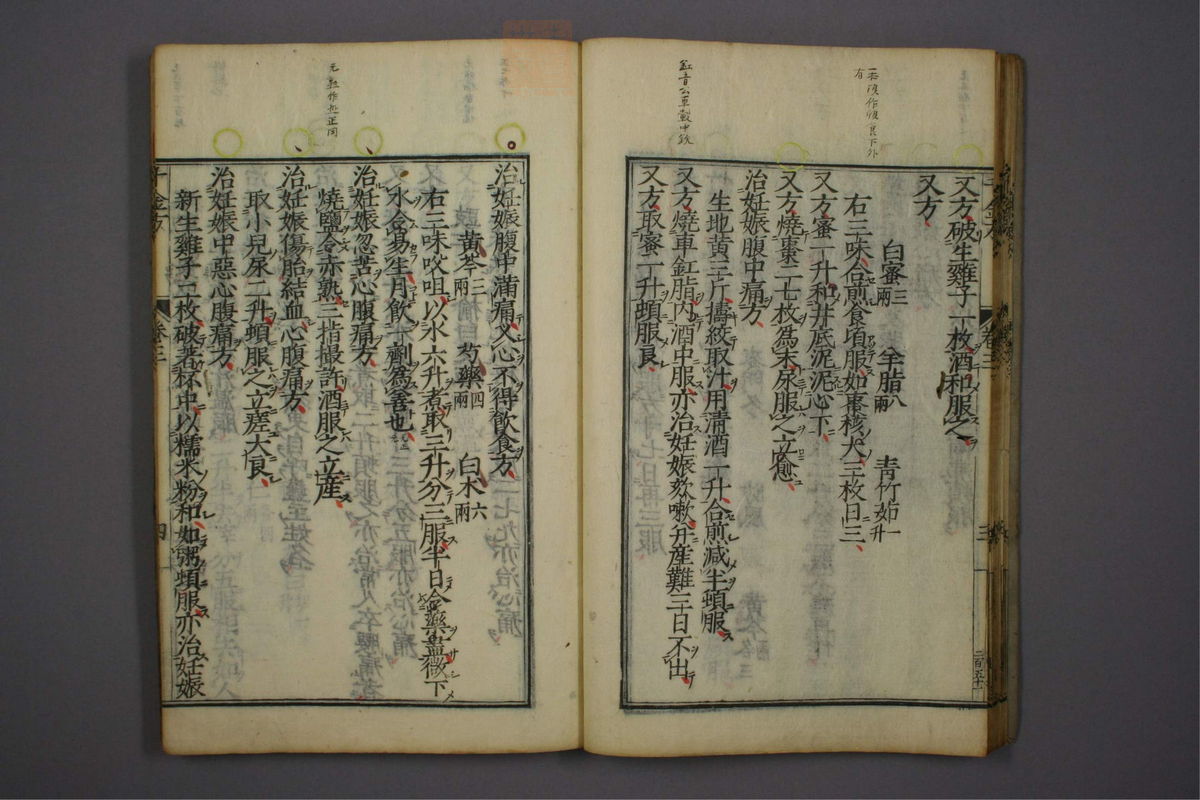 又方破生雞子一枚酒和服之
又方
白蜜三兩 羊脂八兩 青竹茹一升
右三味合煎食頃服如棗核大三枚日三
又方蜜一升和井底泥泥心下
又方燒棗二七枚為末尿服之立愈
治妊娠腹中痛方
生地黃三斤擣絞取汁用清酒一升合煎減半頓服
又方燒車釭脂内酒中服亦治妊娠欬嗽并産難三日不出
又方取蜜一升頓服良
釭音公車轂中鉄
治妊娠腹中滿痛叉心不得飲食方
黃芩三兩 芍藥四兩 白朮六兩
右三味㕮咀以水六升煮取三升分三服半日令藥盡微下
水令易生月飲一劑為善也
治妊娠忽苦心腹痛方
燒鹽令赤熟三指撮許酒服之立産
治妊娠傷胎結血心腹痛方
取小兒尿二升頓服之立差大食
治妊娠中惡心腹痛方
新生雞子二枚破著杯中以糯米粉和如粥頓服亦治妊娠
卷三
三
二百五十一
卷三
四